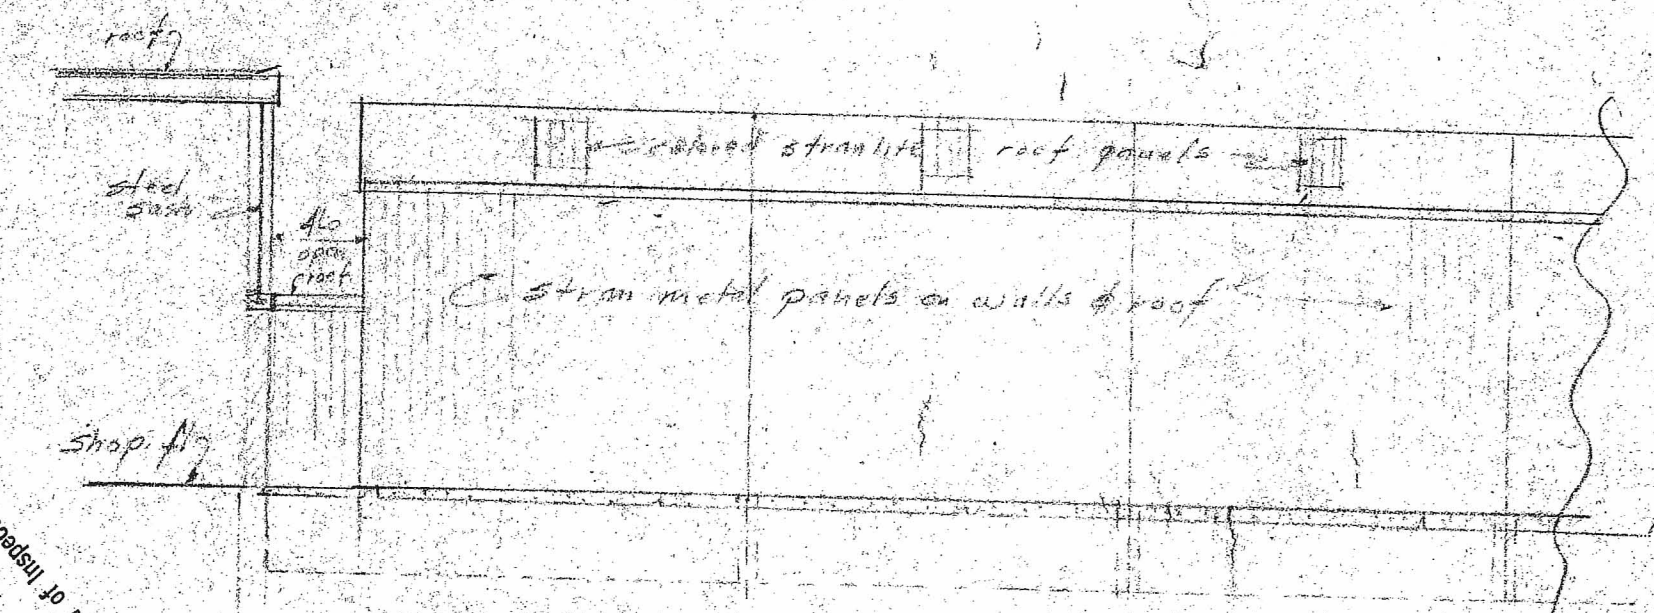 roof
colored stranlite roof panels
steel
sash
open
roof
Stran metal panels on walls & roof
shop flr
of Inspec